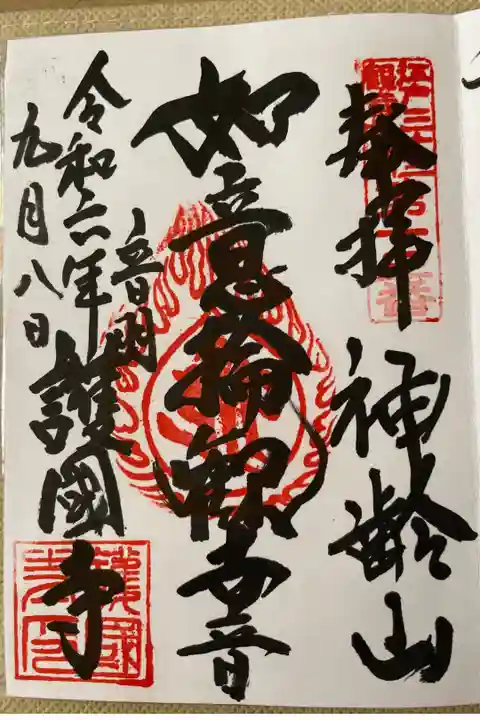 奉拝
神齢山
如意輪観世音
音羽
護國寺
令和六年
九月八日